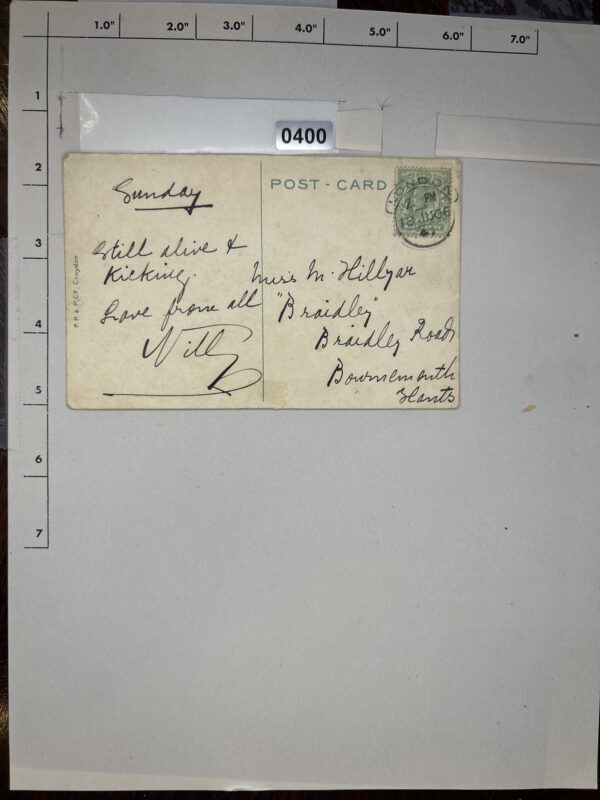 1.0" 2.0" 3.0" 4.0" 5.0" 6.0" 7.0"
1
2
3
4
5
6
7
0400
POST - CARD
LONDON
PM
06
P. P. & P. Co. Croydon
Sunday
Still alive &
Kicking.
Love from all
Willy
Miss M. Hillyar
"Braidley"
Braidley Road
Bournemouth
Hants